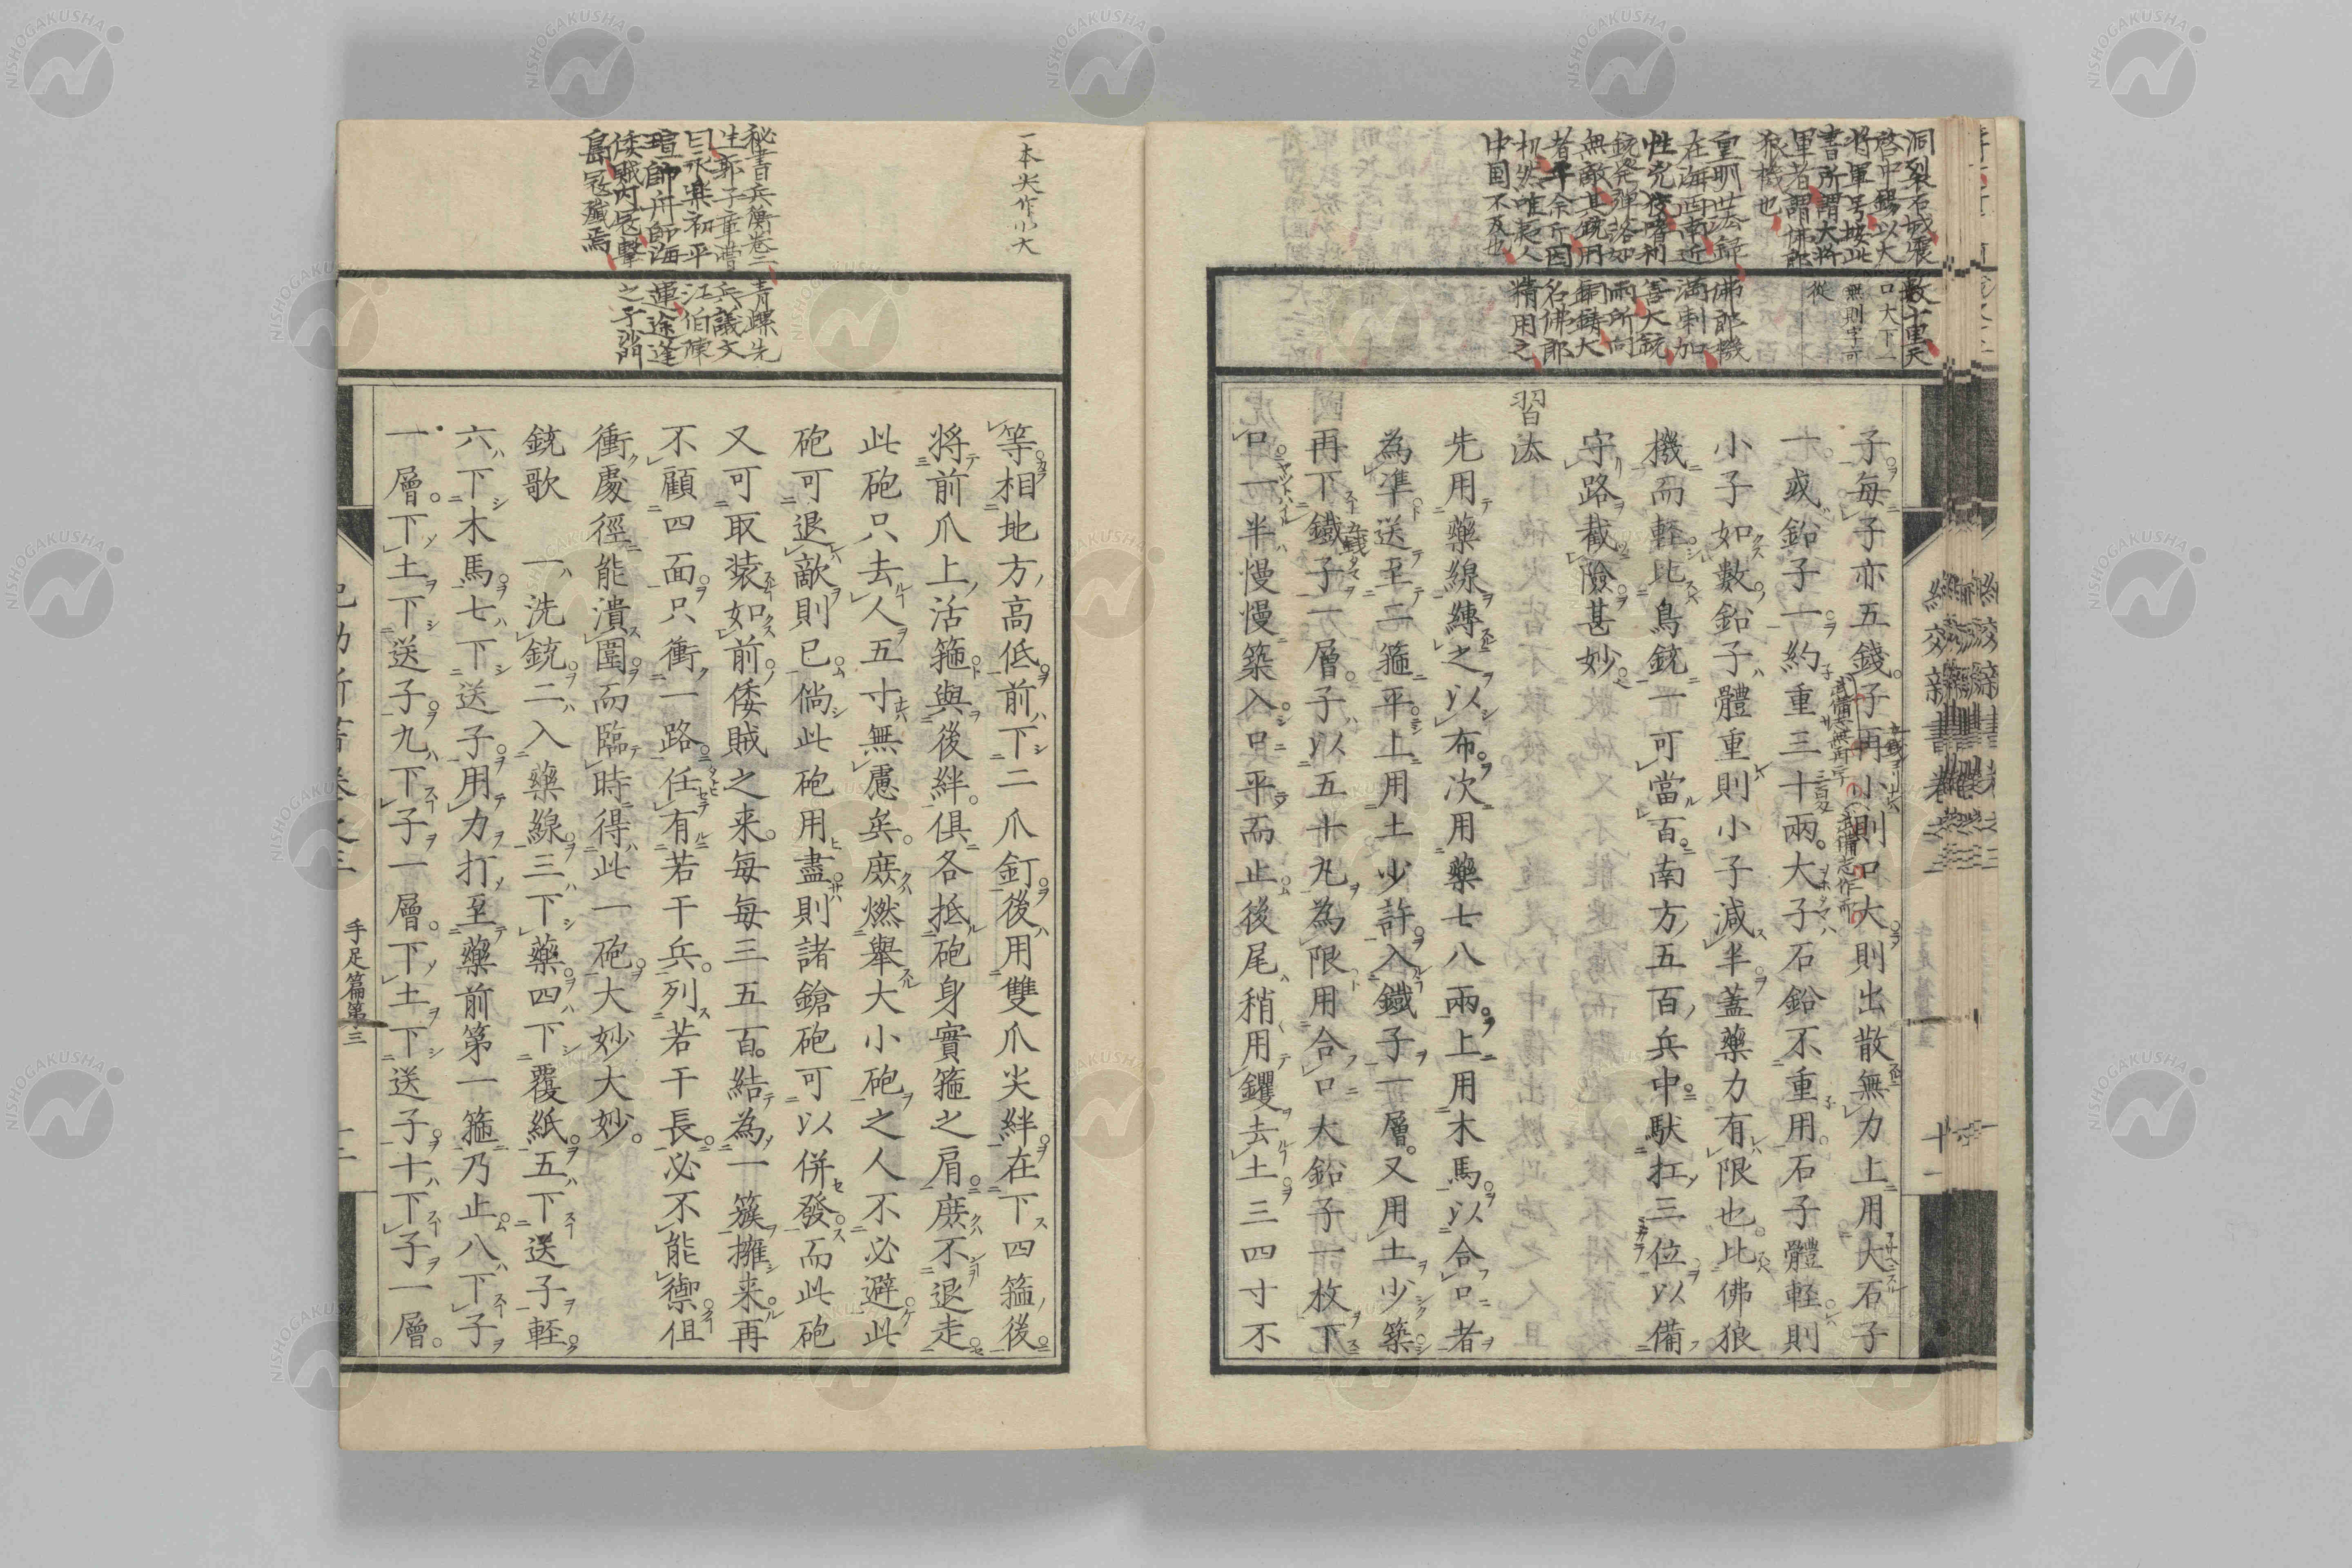 子每子亦五錢子再小則口大則出散無力上用大石子
一或鉛子一約重三十兩大子石鉛不重用石子體輕則
小子如數鉛子體重則小子減半蓋藥力有限也比佛狼
機而輕比鳥銃一可當百南方五百兵中馱扛三位以備
守路截險甚妙
習法
先用藥線縛之以布次用藥七八兩上用木馬以合口者
為準送至二箍平上用土少許入鐵子一層又用土少築
再下鐵子一層子以五十九為限用合口大鉛子一枚下
口一半慢慢築入口平而止後尾稍用钁去土三四寸不
等相地方高低前下二爪釘後用雙爪尖絆在下四箍後
將前爪上活箍與後絆俱各抵砲身實箍之肩庶不退走
此砲只去人五寸無慮矣庶燃舉大小砲之人不必避此
砲可退敵則已倘此砲用盡則諸鎗砲可以併發而此砲
又可取裝如前倭賊之来每每三五百結為一簇擁来再
不顧四面只衝一路任有若干兵列若干長必不能禦但
衝處徑能潰圍而臨時得此一砲大妙大妙
銃歌 一洗銃二入藥線三下藥四下覆紙五下送子輕
六下木馬七下送子用力打至藥前第一箍乃止八下子
一層下土下送子九下子一層下土下送子十下子一層
手足篇第三
一本尖作小大
秘書兵衡卷二青螺先
生郭子章曹兵議文
曰永樂初平江伯陳
瑄帥舟師海運途逢
倭賊內寇擊之于沙門
島寇殲焉
洞裂石城震數十里天
啓中錫以大
將軍号按此
書所謂大將
軍者謂佛郎
狼機也
口大下一
無則字可
從
皇明世法錄佛郎機
在海西南近滿剌加
性兇狡嗜利善大銃
銃発彈落如雨所向
無敵其銃用銅鑄大
者千余斤因名佛郎
机然唯夷人精用之
中国不及也